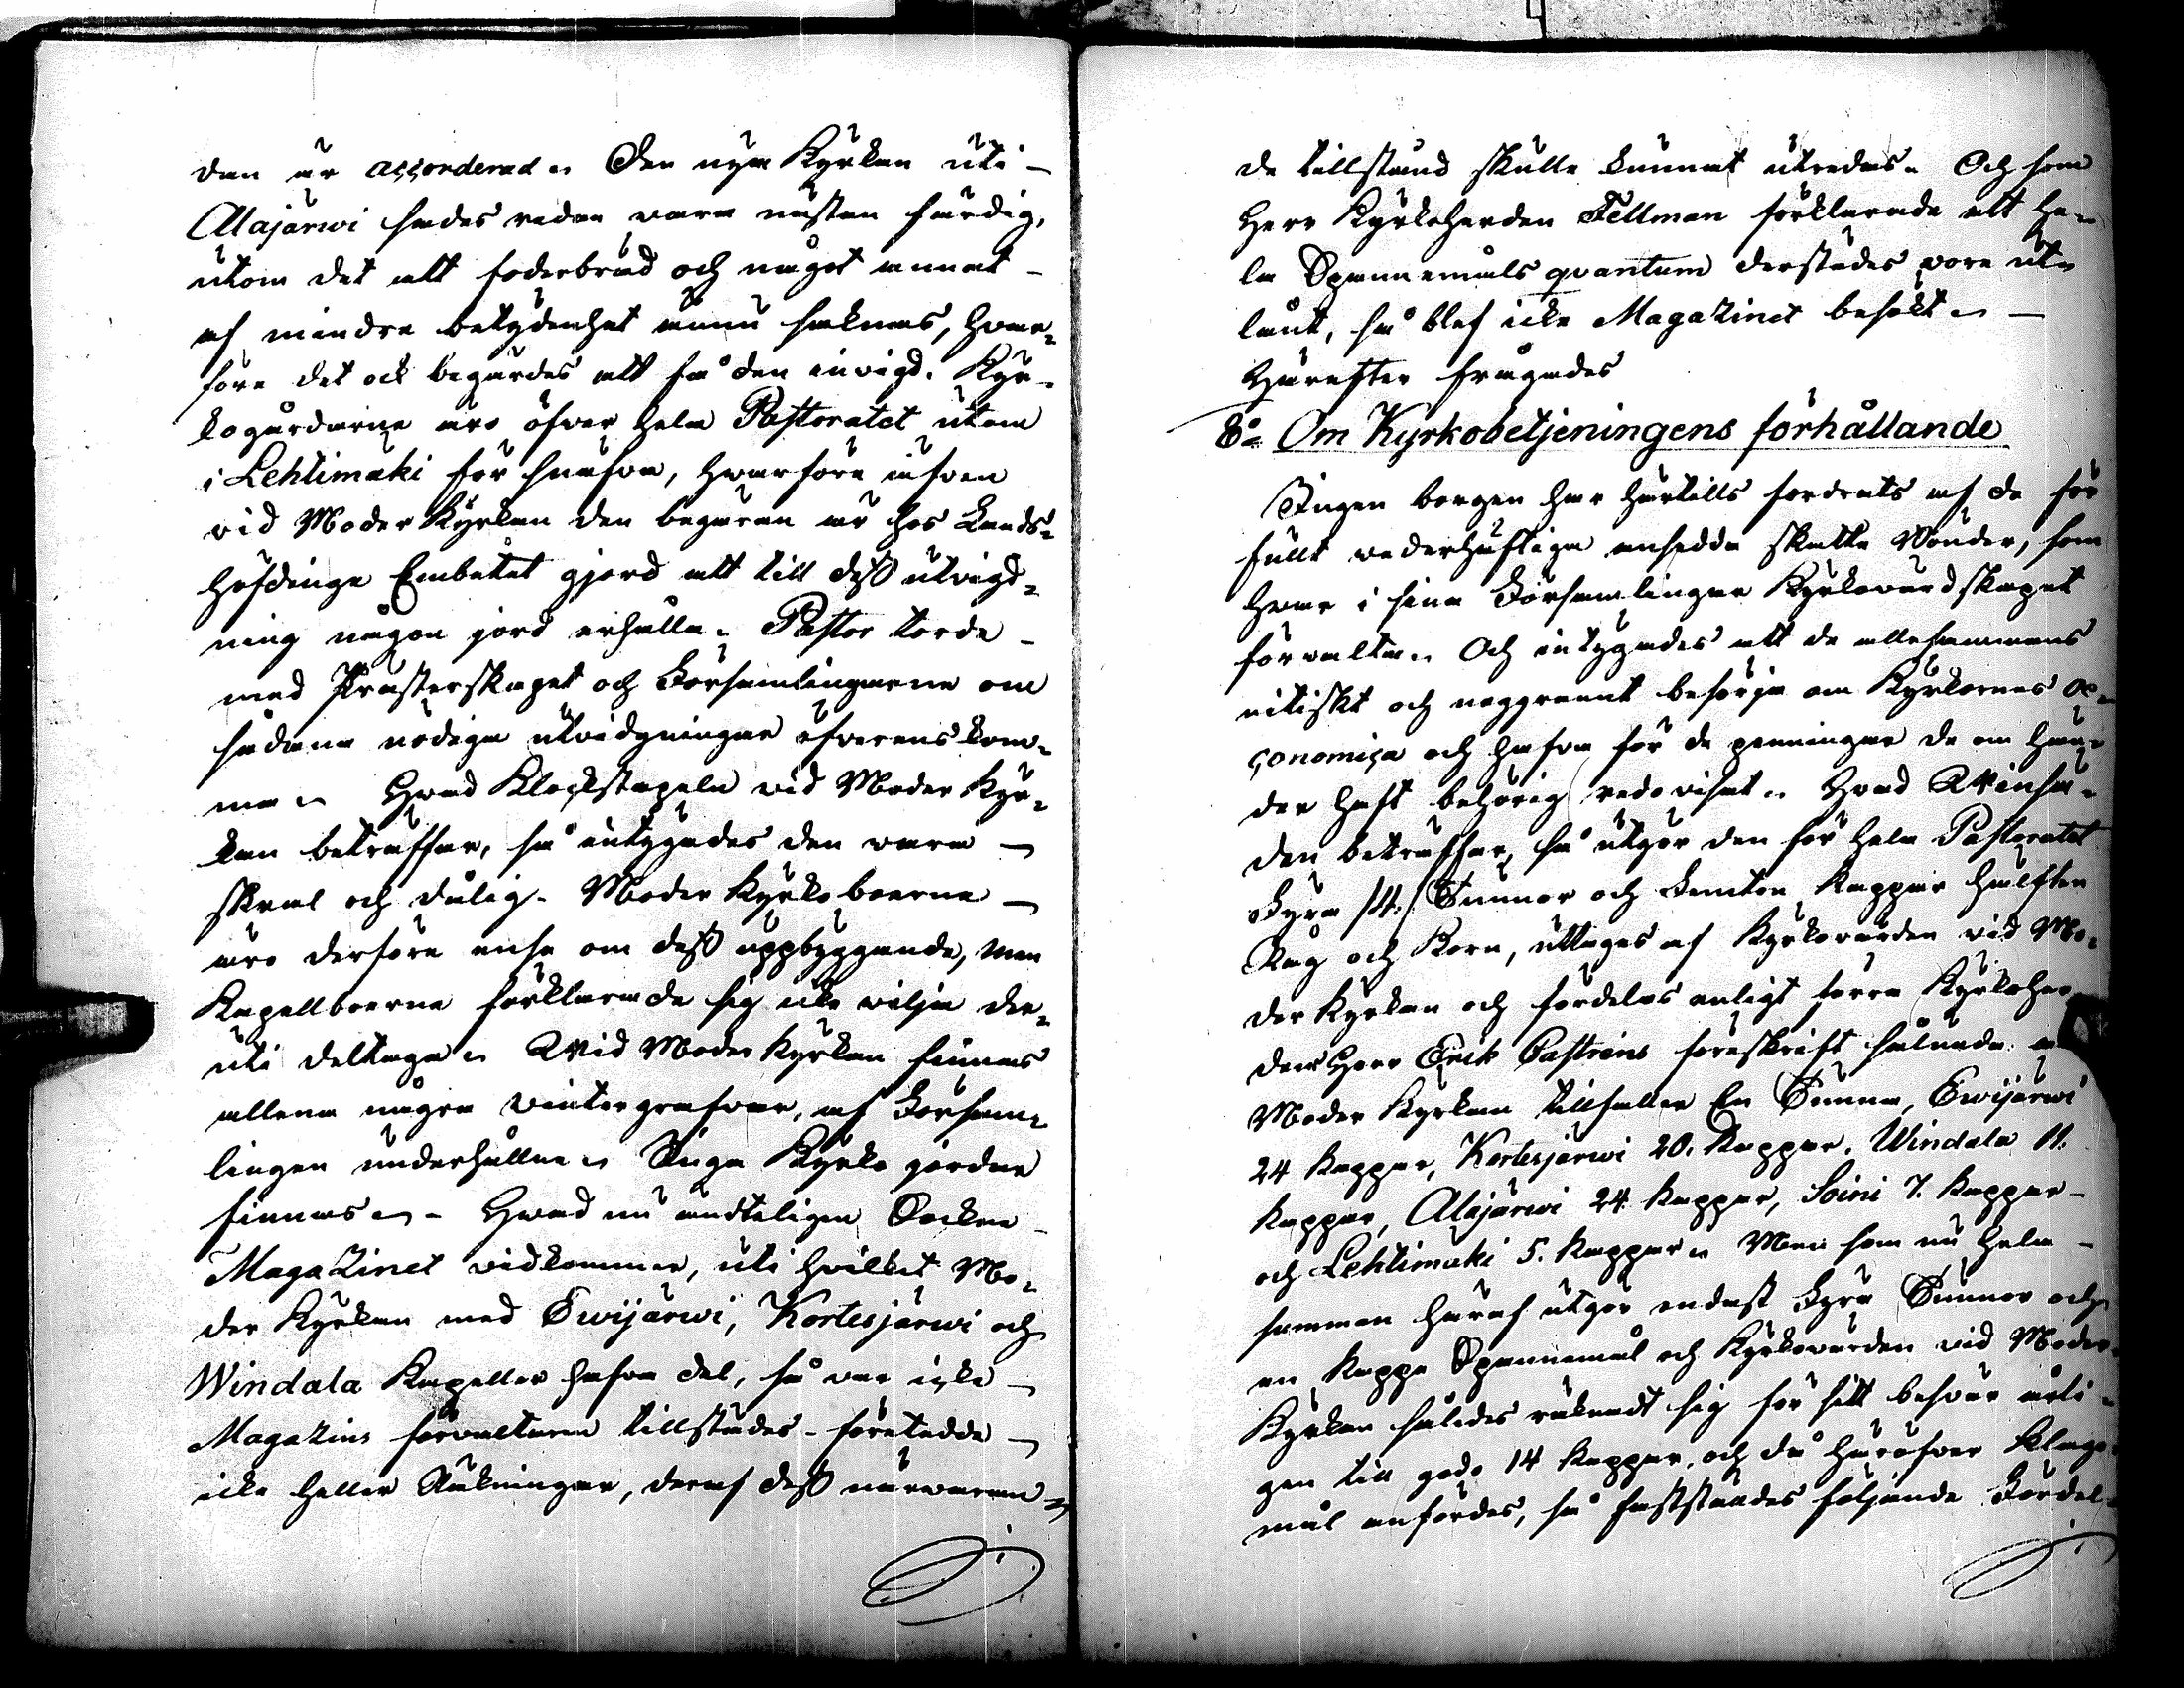 den är accorderad. Den nya Kyrkan uti
Alajärwi sades redan wara nästan färdig,
utom det att foderbräd och något annat
af mindre betydenhet ännu saknas, hvar-
före det ock begärdes att få den invigd. Kyr-
kogårdarne äro öfver hela Pastoratet utom
i Lehtimäki för snäfva, hvarföre äfven
vid Moder Kyrkan den begäran är hos Lands-
höfdinge Embetet gjord att till dess utvidg-
ning någon jord erhålla. Pastor torde
med Presterskapet och Församlingarne om
sådana nödiga utvidgningar öfverenskom-
ma. Hvad Klockstapeln vid Moder Kyr-
kan beträffar, så intygades den vara
skral och dålig. Moder Kyrkoboerne
äro derföre ense om dess uppbyggande, men
Kapellboerne förklarade sig icke vilja der-
uti deltaga. Wid Moder Kyrkan finnas
allena några vintergrafvar, af Försam-
lingen underhållne. Inga Kyrko jordar
finnas. Hvad nu ändteligen Socken
Magazinet vidkommer, uti hvilket Mo-
der Kyrkan med Ewijärwi, Kortesjärwi och
Windala Kapeller hafva del, så var icke
Magazins förvaltaren tillstädes, företedde
icke heller Räkningar, deraf dess närvaran-
de tillstånd skulle kunnat utredas. Och som
Herr Kyrkoherden Fellman förklarade att he-
la Spannemåls qvantum derstädes vore ut-
lånt, så blef icke Magazinet besökt.
Härefter frågades
8:o Om Kyrkobetjeningens förhållande
Ingen borgen har härtills fordrats af de för
fullt vederhäftiga ansedde skatte Bönder, som
hvar i sina Församlingar Kyrkovärdskapet
förvalta. Och intygades att de allesammans
nitiskt och noggrannt besörja om Kyrkornas oe-
conomica och hafva för de penningar de om hän-
der haft behörig redovisat. Hvad Winsä-
den beträffar, så utgör den för hela Pastoratet
Fyra /4:/ Tunnor och Femton Kappar hälften
Råg och Korn, uttages af Kyrkovärden vid Mo-
der Kyrkan och fördelas enligt förra Kyrkoher-
dens Herr Erik Castréns föreskrift sålunda: 
Moder Kyrkan tillfaller En Tunna, Ewijärwi
24 Kappar, Kortesjärwi 20. Kappar, Windala 11.
Kappar, Alajärwi 24 Kappar, Soini 7. Kappar
och Lehtimäki 5. Kappar. Men som nu hela
summan häraf utgör endast Fyra Tunnor och
en Kappe Spannemål och Kyrkovärden vid Moder
Kyrkan således räknadt sig för sitt besvär årli-
gen till godo 14 Kappar, och då häröfver klago-
mål anfördes, så fastställdes följande Fördel-